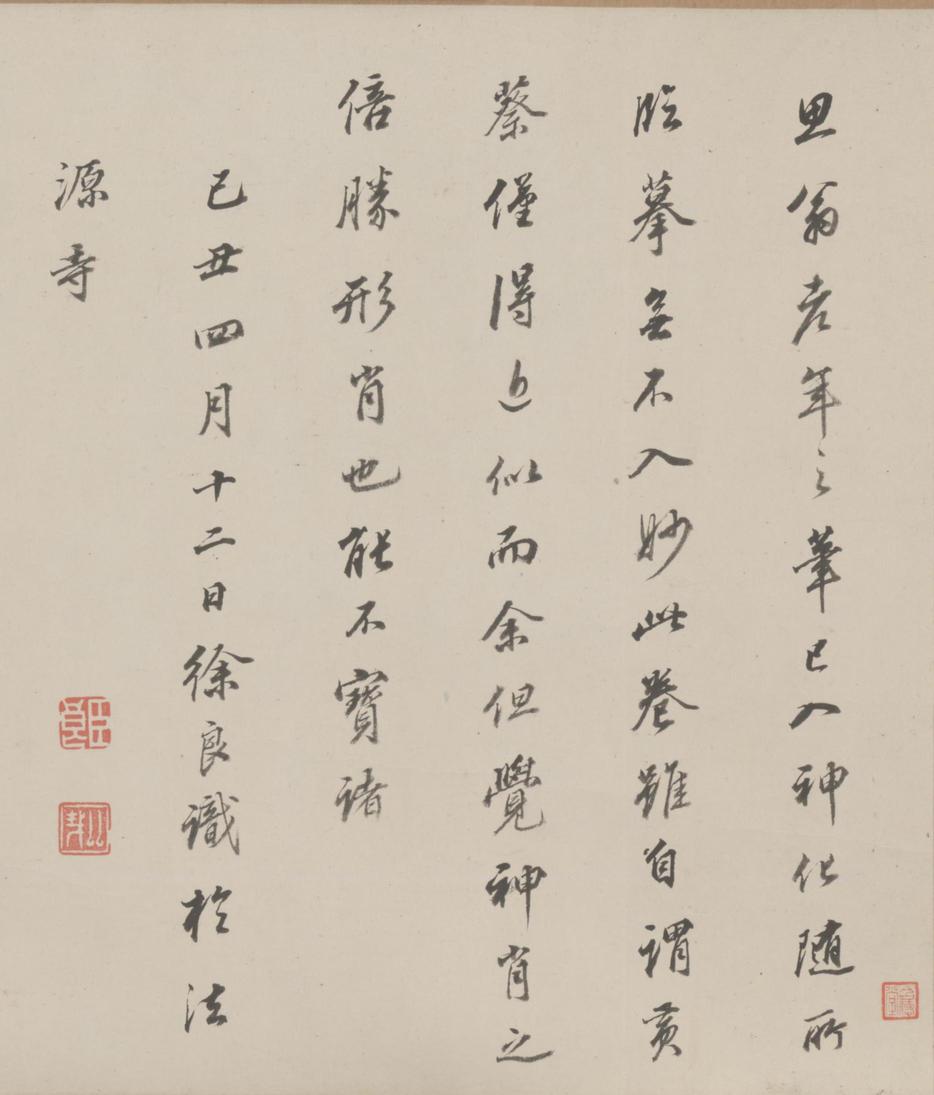 思翁老年之筆已入神化隨所
臨摹無不入妙此卷雖自謂黃
蔡僅得近似而余但覺神肖之
倍勝形肖也能不寶諸
己丑四月十二日徐良識於法
源寺